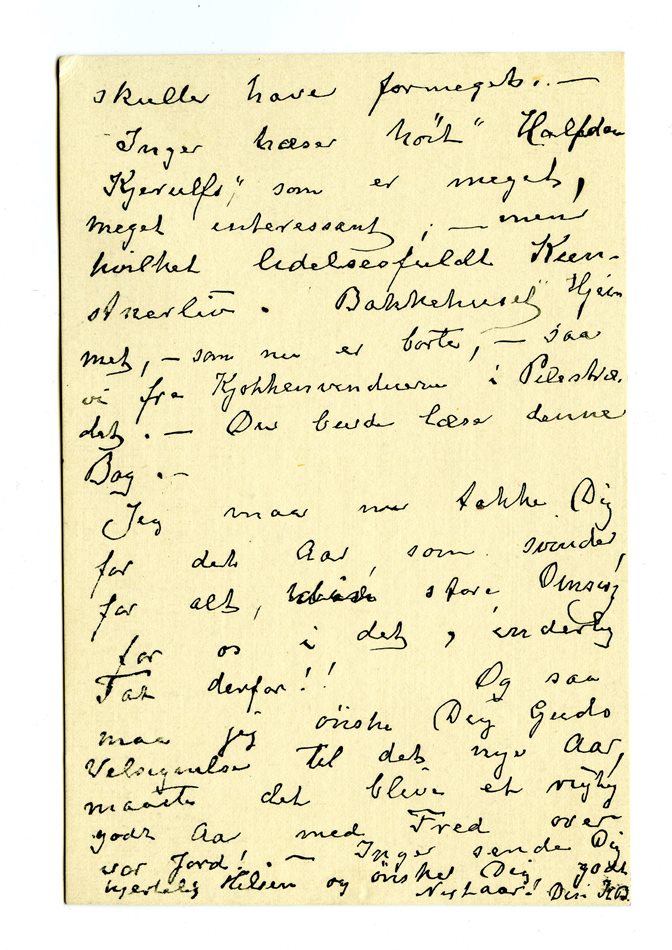 skulle have formeget. —
Inger læser höit "Halfdan
Kjerulf", som er meget,
meget interessant, — men
hvilket lidelsesfuldt Kun-
stnerliv. Bakkehuset, Hjem
met, — som nu er borte, — saa
vi fra Kjøkkenvinduerne i Pilestræ-
det. — Du burde læse denne
Bog. —
Jeg maa nu takke Dig
for det Aar, som svinder,
for alt, store Omsorg
for os i det, inderlig
Tak derfor!! Og saa
maa jeg önske Dig Guds
Velsignelse til det nye Aar,
maatte det blive et rigtig
godt Aar med Fred over
vor Jord! — Inger sender Dig
hjertelig Hilsen og önsker Dig godt
Nytaar! Din